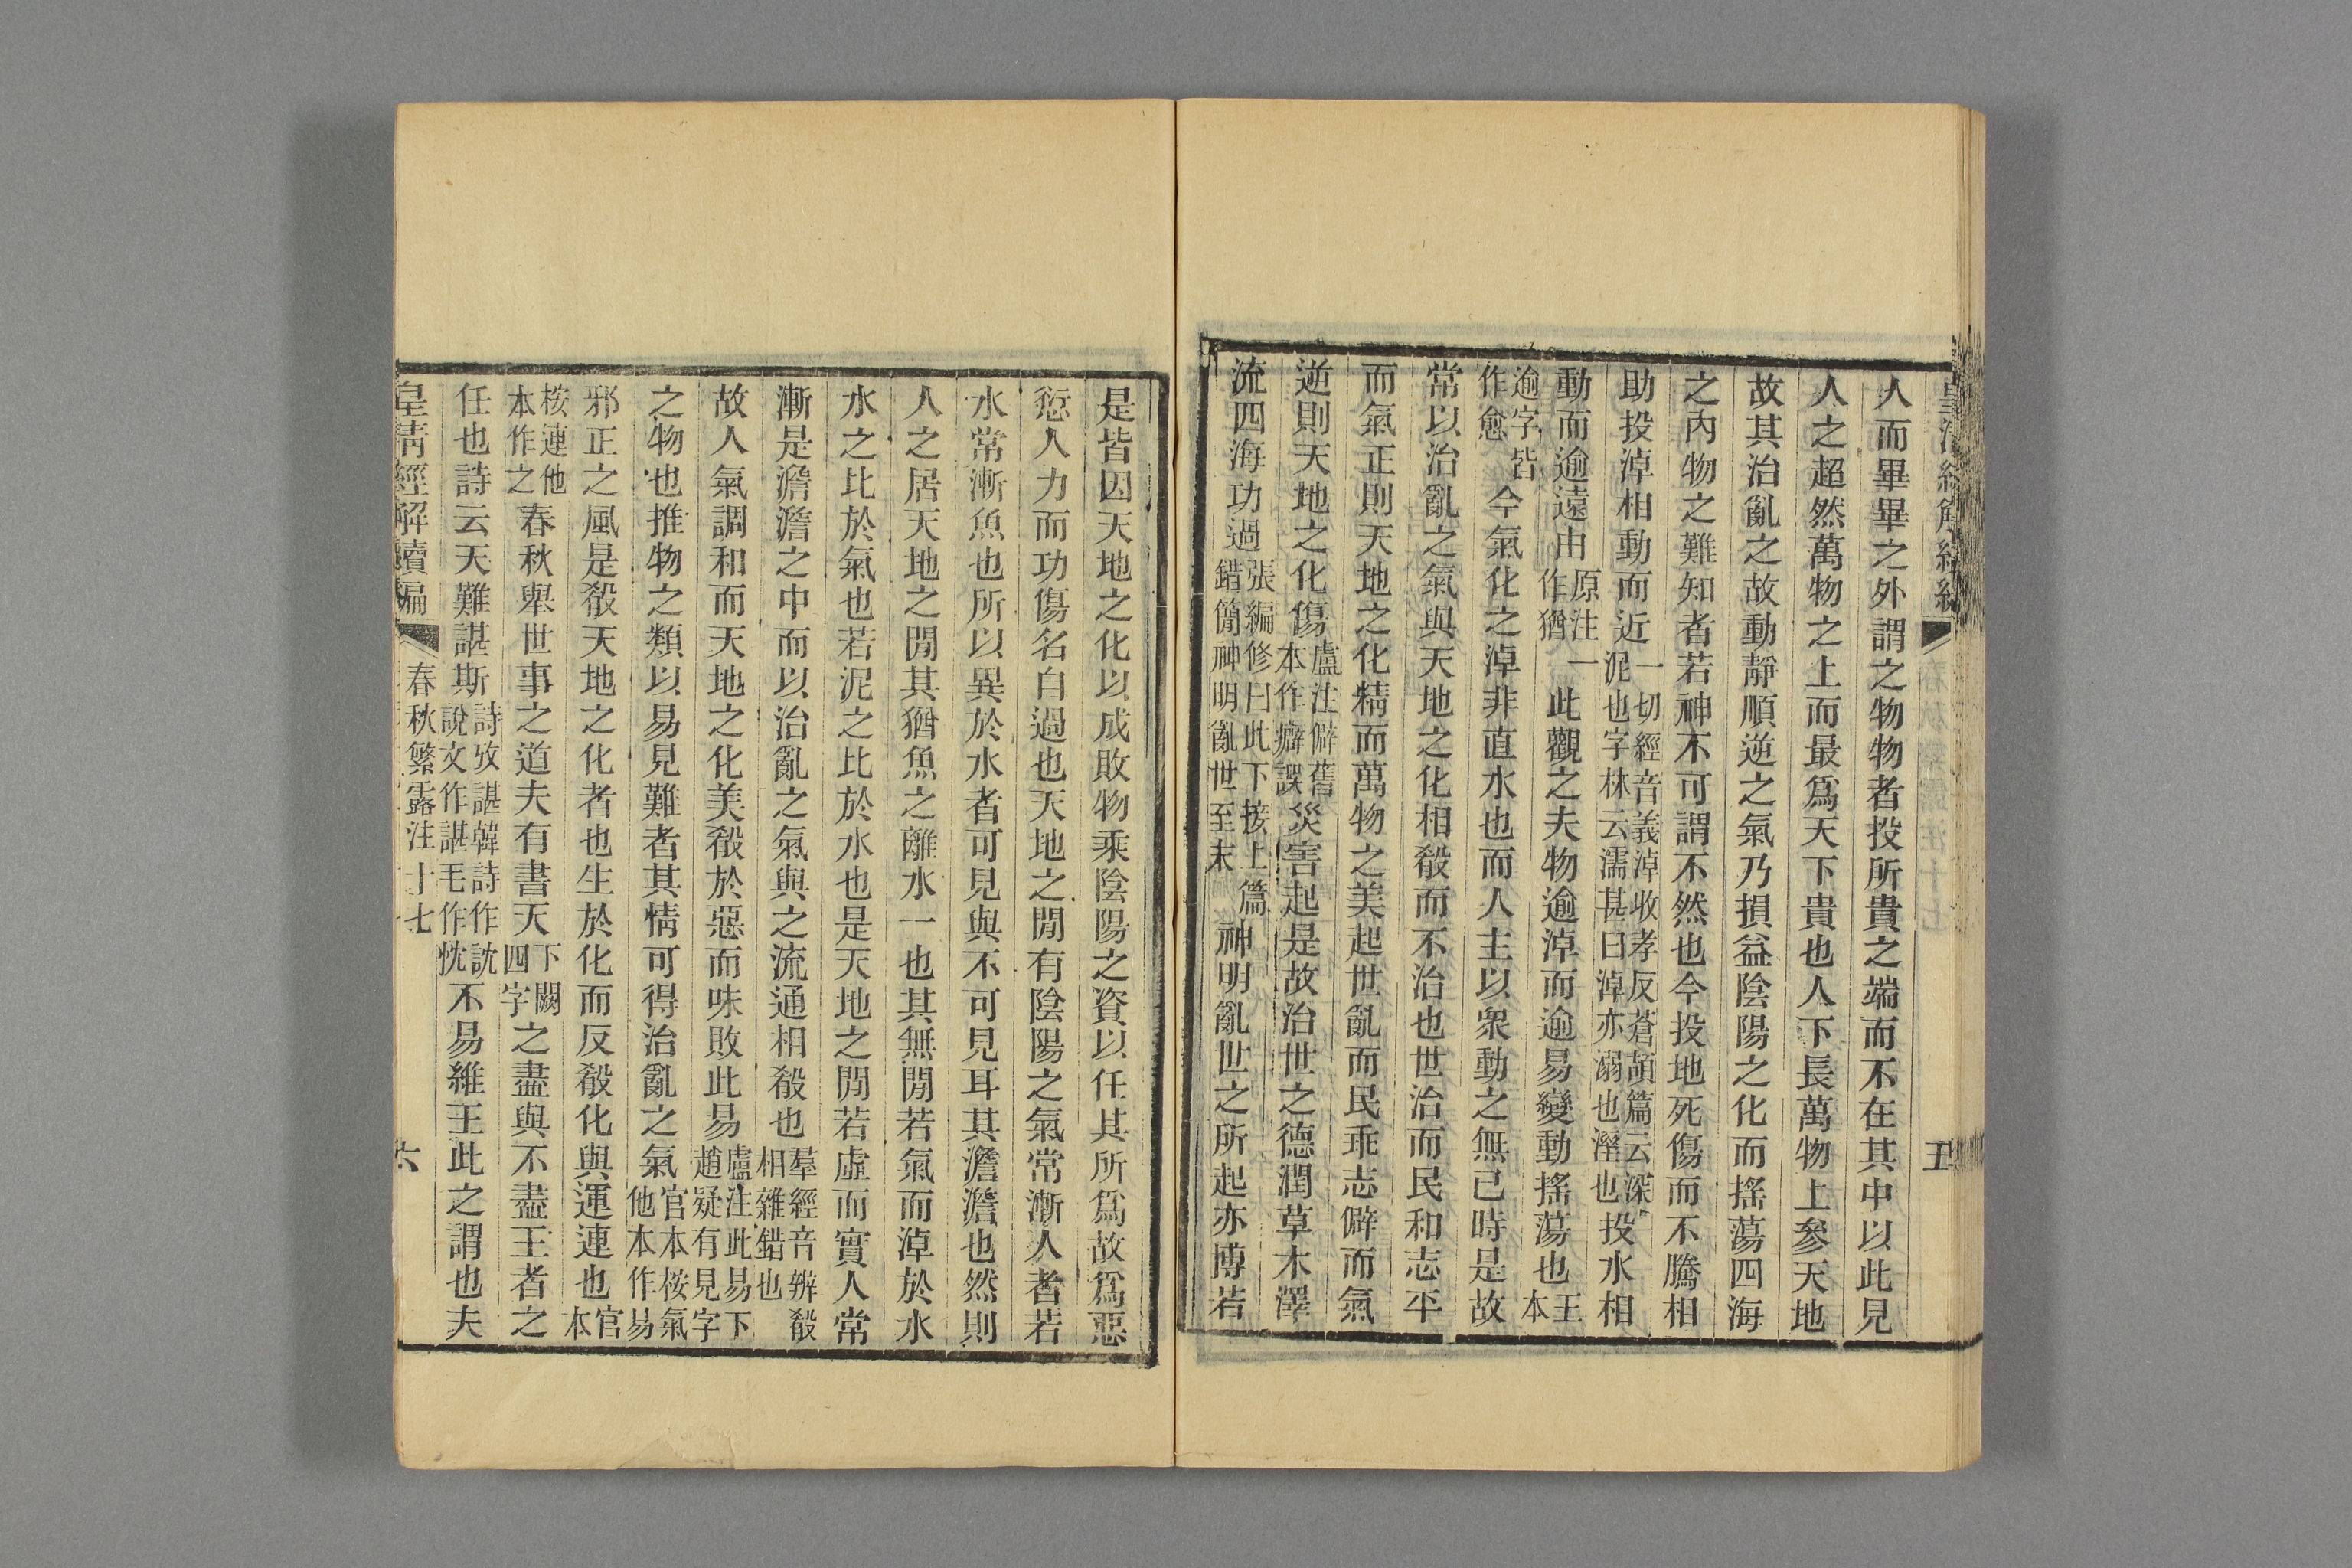 人而畢畢之外謂之物物者投所貴之端而不在其中以此見
人之超然萬物之上而最爲天下貴也人下長萬物上參天地
故其治亂之故動靜順逆之氣乃損益陰陽之化而搖蕩四海
之內物之難知者若神不可謂不然也今投地死傷而不騰相
助投淖相動而近一切經音義淖收孝反蒼頡篇云深泥也字林云濡甚曰淖亦溺也溼也投水相
動而逾遠由原注一作猶此觀之夫物逾淖而逾易變動搖蕩也王本
逾字皆作愈今氣化之淖非直水也而人主以衆動之無已時是故
常以治亂之氣與天地之化相殽而不治也世治而民和志平
而氣正則天地之化精而萬物之美起世亂而民乖志僻而氣
逆則天地之化傷盧注僻舊本作癖誤災害起是故治世之德潤草木澤
流四海功過張編修曰此下接上篇錯簡神明亂世至末神明亂世之所起亦博若
五
是皆因天地之化以成敗物乘陰陽之資以任其所爲故爲惡
愆人力而功傷名自過也天地之閒有陰陽之氣常漸人者若
水常漸魚也所以異於水者可見與不可見耳其澹澹也然則
人之居天地之閒其猶魚之離水一也其無閒若氣而淖於水
水之比於氣也若泥之比於水也是天地之閒若虛而實人常
漸是澹澹之中而以治亂之氣與之流通相殽也羣經音辨殽相雜錯也
故人氣調和而天地之化美殽於惡而味敗此易盧注此易下趙疑有見字
之物也推物之類以易見難者其情可得治亂之氣官本桉氣他本作易
邪正之風是殽天地之化者也生於化而反殽化與運連也官本
桉連他本作之春秋舉世事之道夫有書天下闕四字之盡與不盡王者之
任也詩云天難諶斯詩攷諶韓詩作訦說文作諶毛作忱不易維王此之謂也夫
皇清經解續編 春秋繁露注十七 六